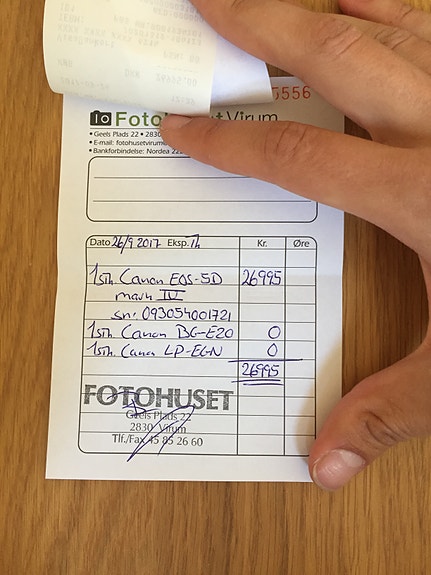 5556
Foto Virum
• Geels Plads 22 • 2830
• E-mail: fotohusetvirum
• Bankforbindelse: Nordea 22
Dato 26/9 2017 Eksp. Th Kr. Øre
1 stk. Canon EOS-5D 26995
mark IV
sn: 093054001721
1 stk. Canon BG-E20 0
1 stk. Canon LP-E6N 0
26995
FOTOHUSET
Geels Plads 22
2830 Virum
Tlf./Fax 45 85 26 60